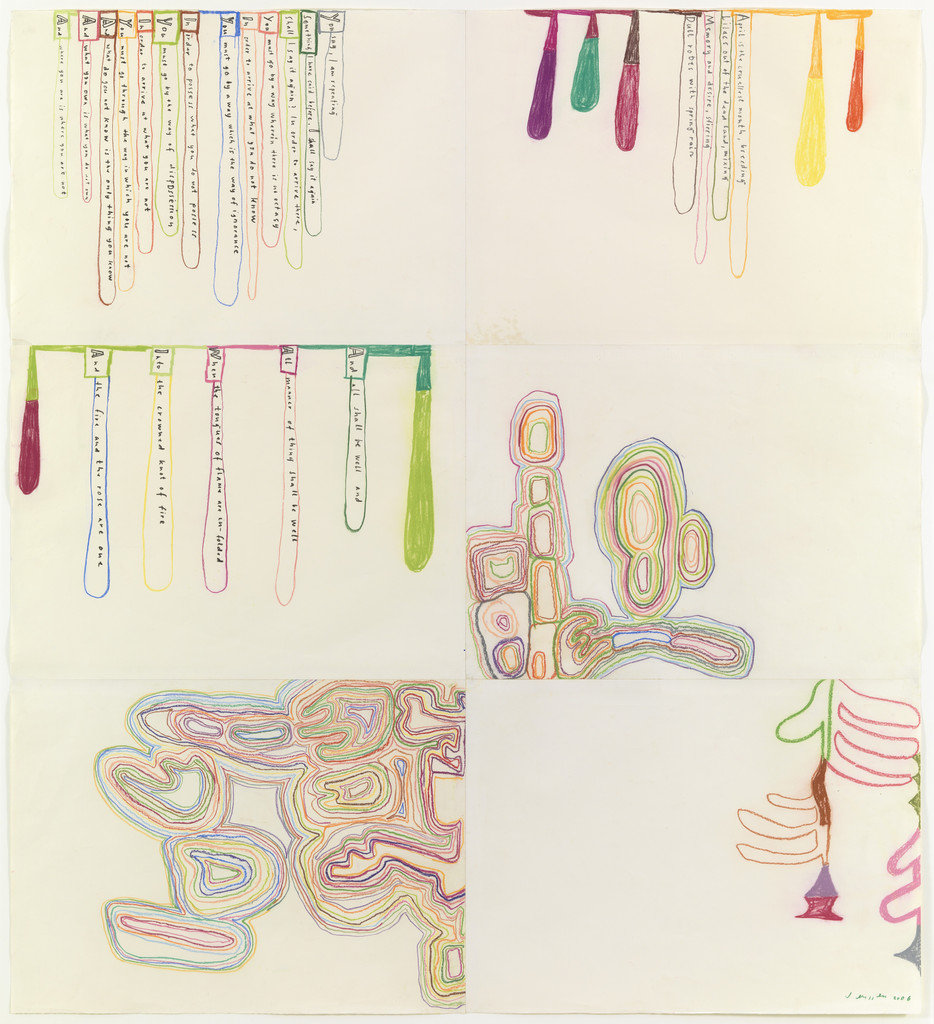 You say, I am repeating
Something I have said before, I shall say it again
Shall I say it again? In order to arrive there,
You must go by a way wherein there is no ecstasy
In order to arrive at what you do not know
You must go by a way which is the way of ignorance
In order to possess what you do not possess
You must go by the way of dispossession
In order to arrive at what you are not
You must go through the way in which you are not
And what do you not know is the only thing you know
And what you own is what you do not own
And where you are is where you are not
April is the cruellest month, breeding
Lilacs out of the dead land, mixing
Memory and desire, stirring
Dull roots with spring rain
And all shall be well and
All manner of thing shall be well
When the tongues of flame are in-folded
Into the crowned knot of fire
And the fire and the rose are one